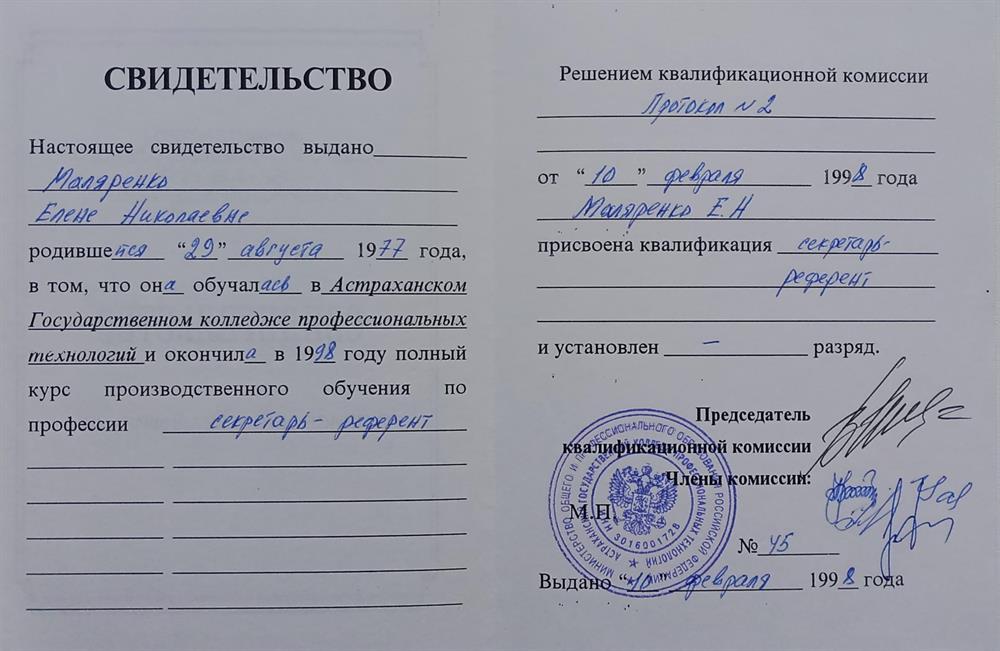 СВИДЕТЕЛЬСТВО
Настоящее свидетельство выдано
Маляренко
Елене Николаевне
родившейся “29” августа 1977 года,
в том, что она обучалась в Астраханском
Государственном колледже профессиональных
технологий и окончила в 1998 году полный
курс производственного обучения по
профессии секретарь-референт
Решением квалификационной комиссии
Протокол №2
от “10” февраля 1998 года
Маляренко Е.Н
присвоена квалификация секретарь-
референт
и установлен – разряд.
Председатель
квалификационной комиссии
Члены комиссии:
М.П.
№ 45
Выдано “10” февраля 1998 года
МИНИСТЕРСТВО ОБЩЕГО И ПРОФЕССИОНАЛЬНОГО ОБРАЗОВАНИЯ РОССИЙСКОЙ ФЕДЕРАЦИИ
АСТРАХАНСКИЙ ГОСУДАРСТВЕННЫЙ КОЛЛЕДЖ ПРОФЕССИОНАЛЬНЫХ ТЕХНОЛОГИЙ
ИНН 3016001728